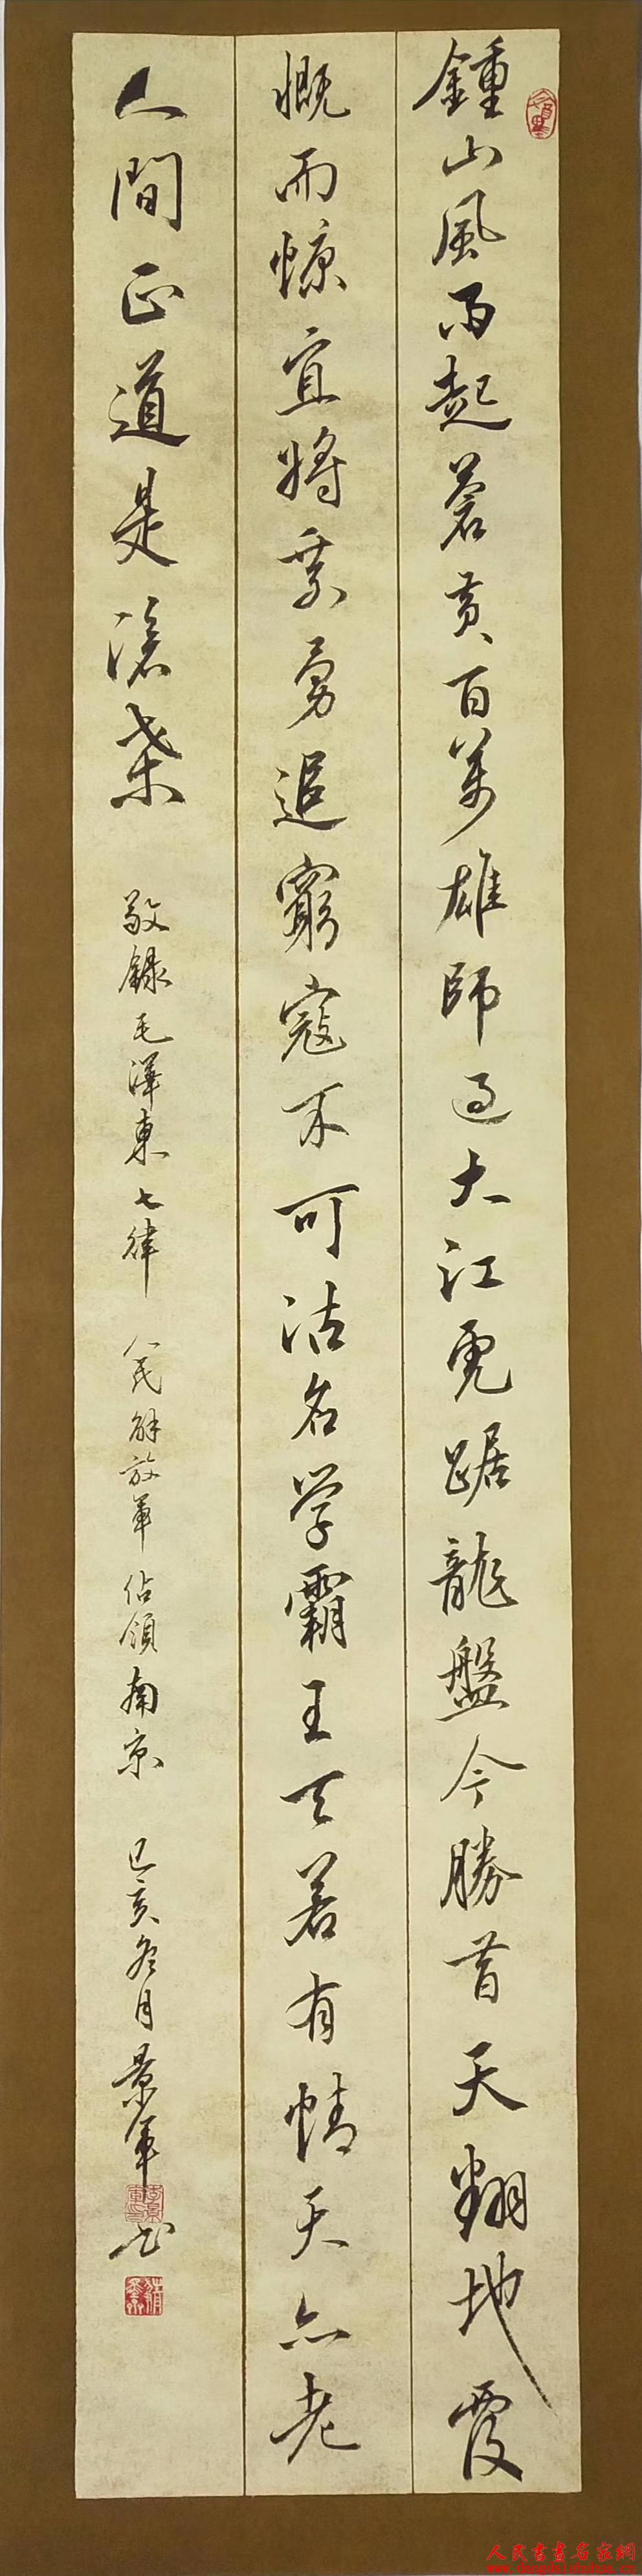 鍾山風雨起蒼黄百萬雄師过大江虎踞龍盤今勝昔天翻地覆
慨而慷宜將乘勇追窮寇不可沽名学霸王天若有情天亦老
人間正道是滄桒 敬録毛澤東七律 人民解放軍佔領南京 己亥冬月景軍书
人民書畫名家網